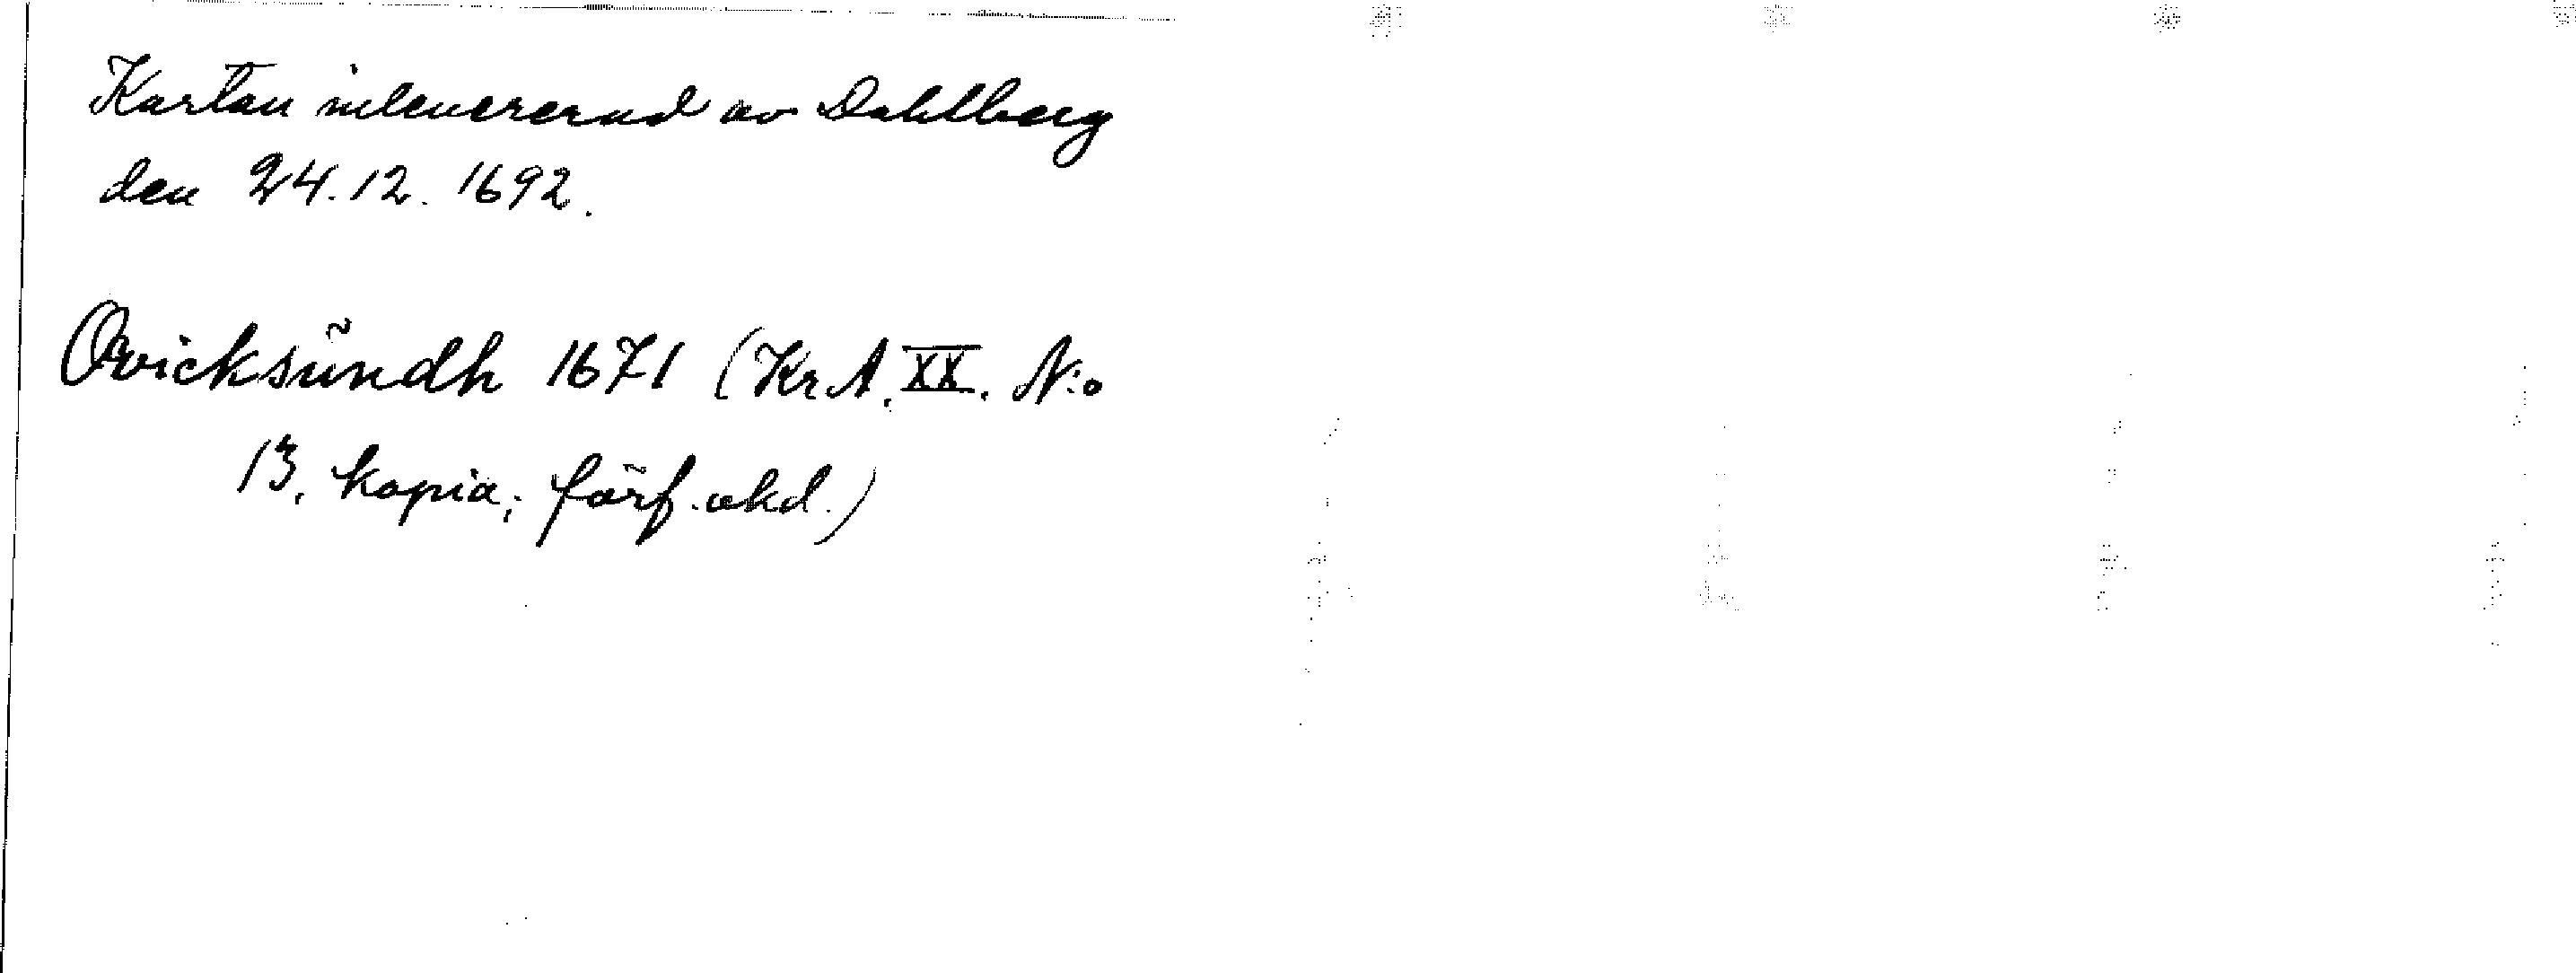 Kartan inlevererad av Dahlberg
den 24.12.1692.
Qvicksündh 1671 (KrA. XX. N:o
13. kopia; förf. okd.)